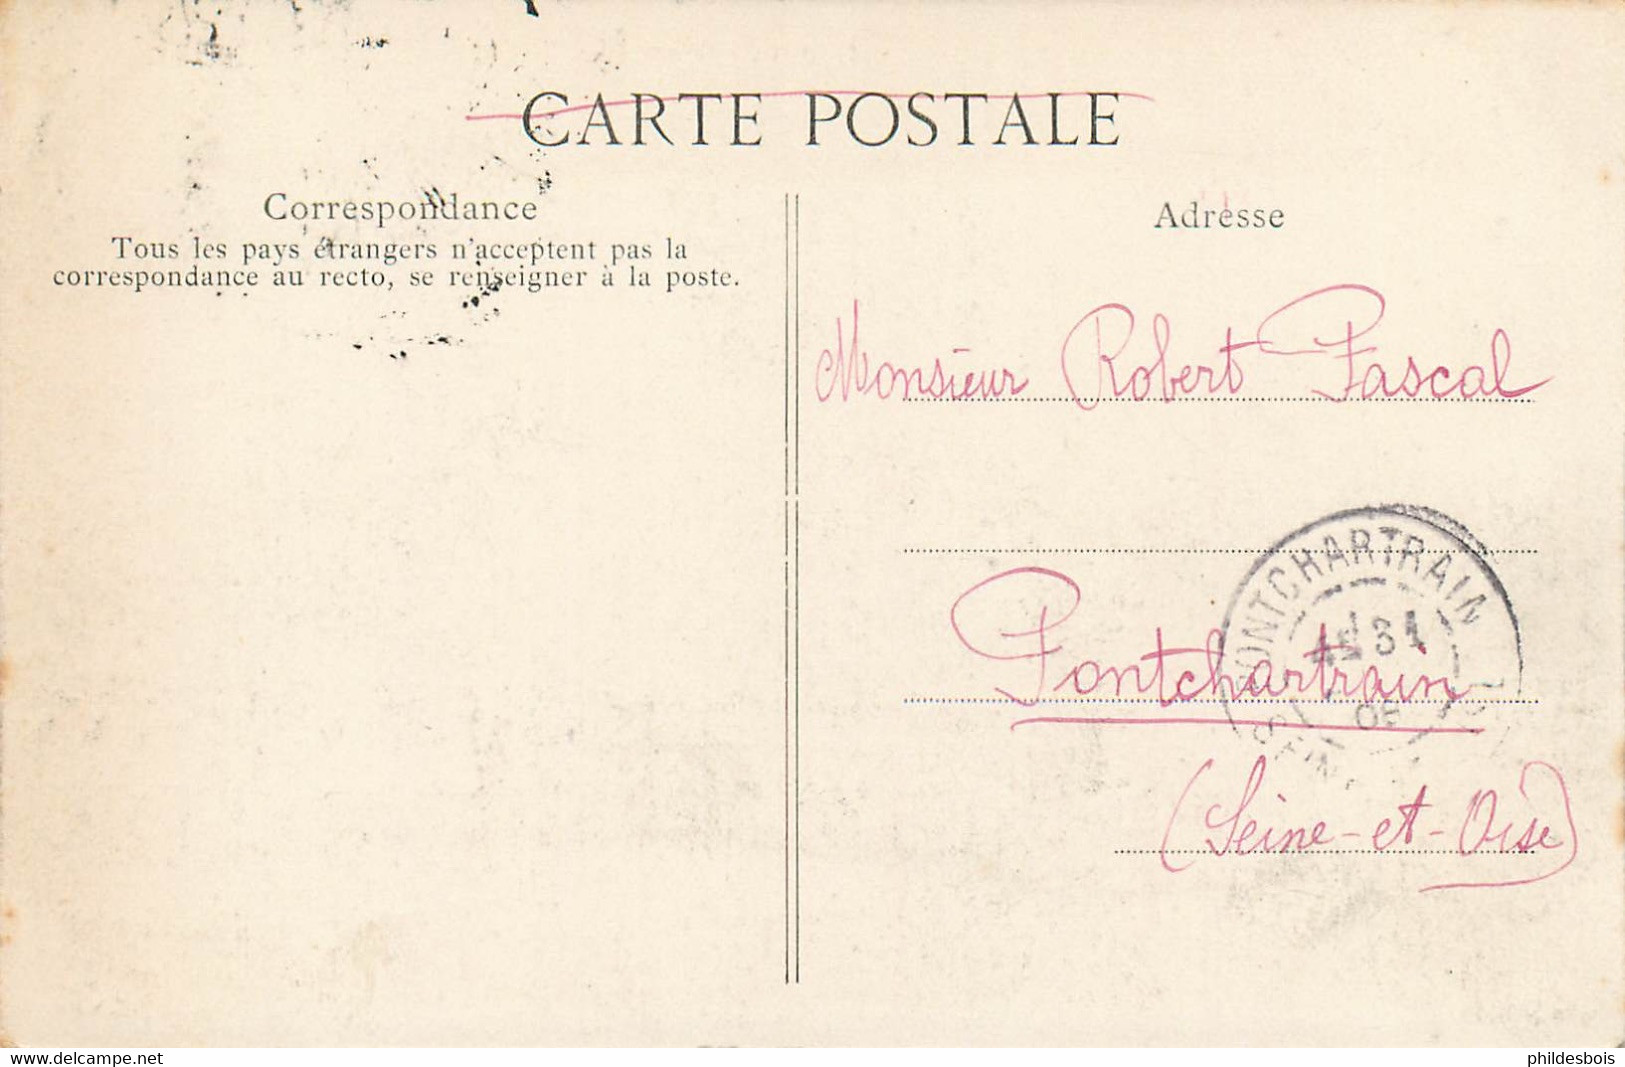 CARTE POSTALE
Correspondance
Tous les pays étrangers n'acceptent pas la
correspondance au recto, se renseigner à la poste.
Adresse
Monsieur Robert Pascal
PONTCHARTRAIN
31
Pontchartrain
(Seine-et-Oise)
www.delcampe.net
phildesbois